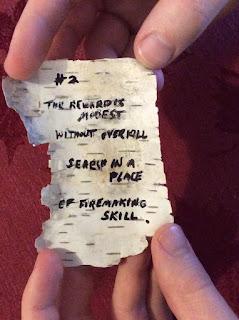 #2
THE REWARD IS
MODEST
WITHOUT OVERKILL
SEARCH IN A
PLACE
OF FIREMAKING
SKILL.